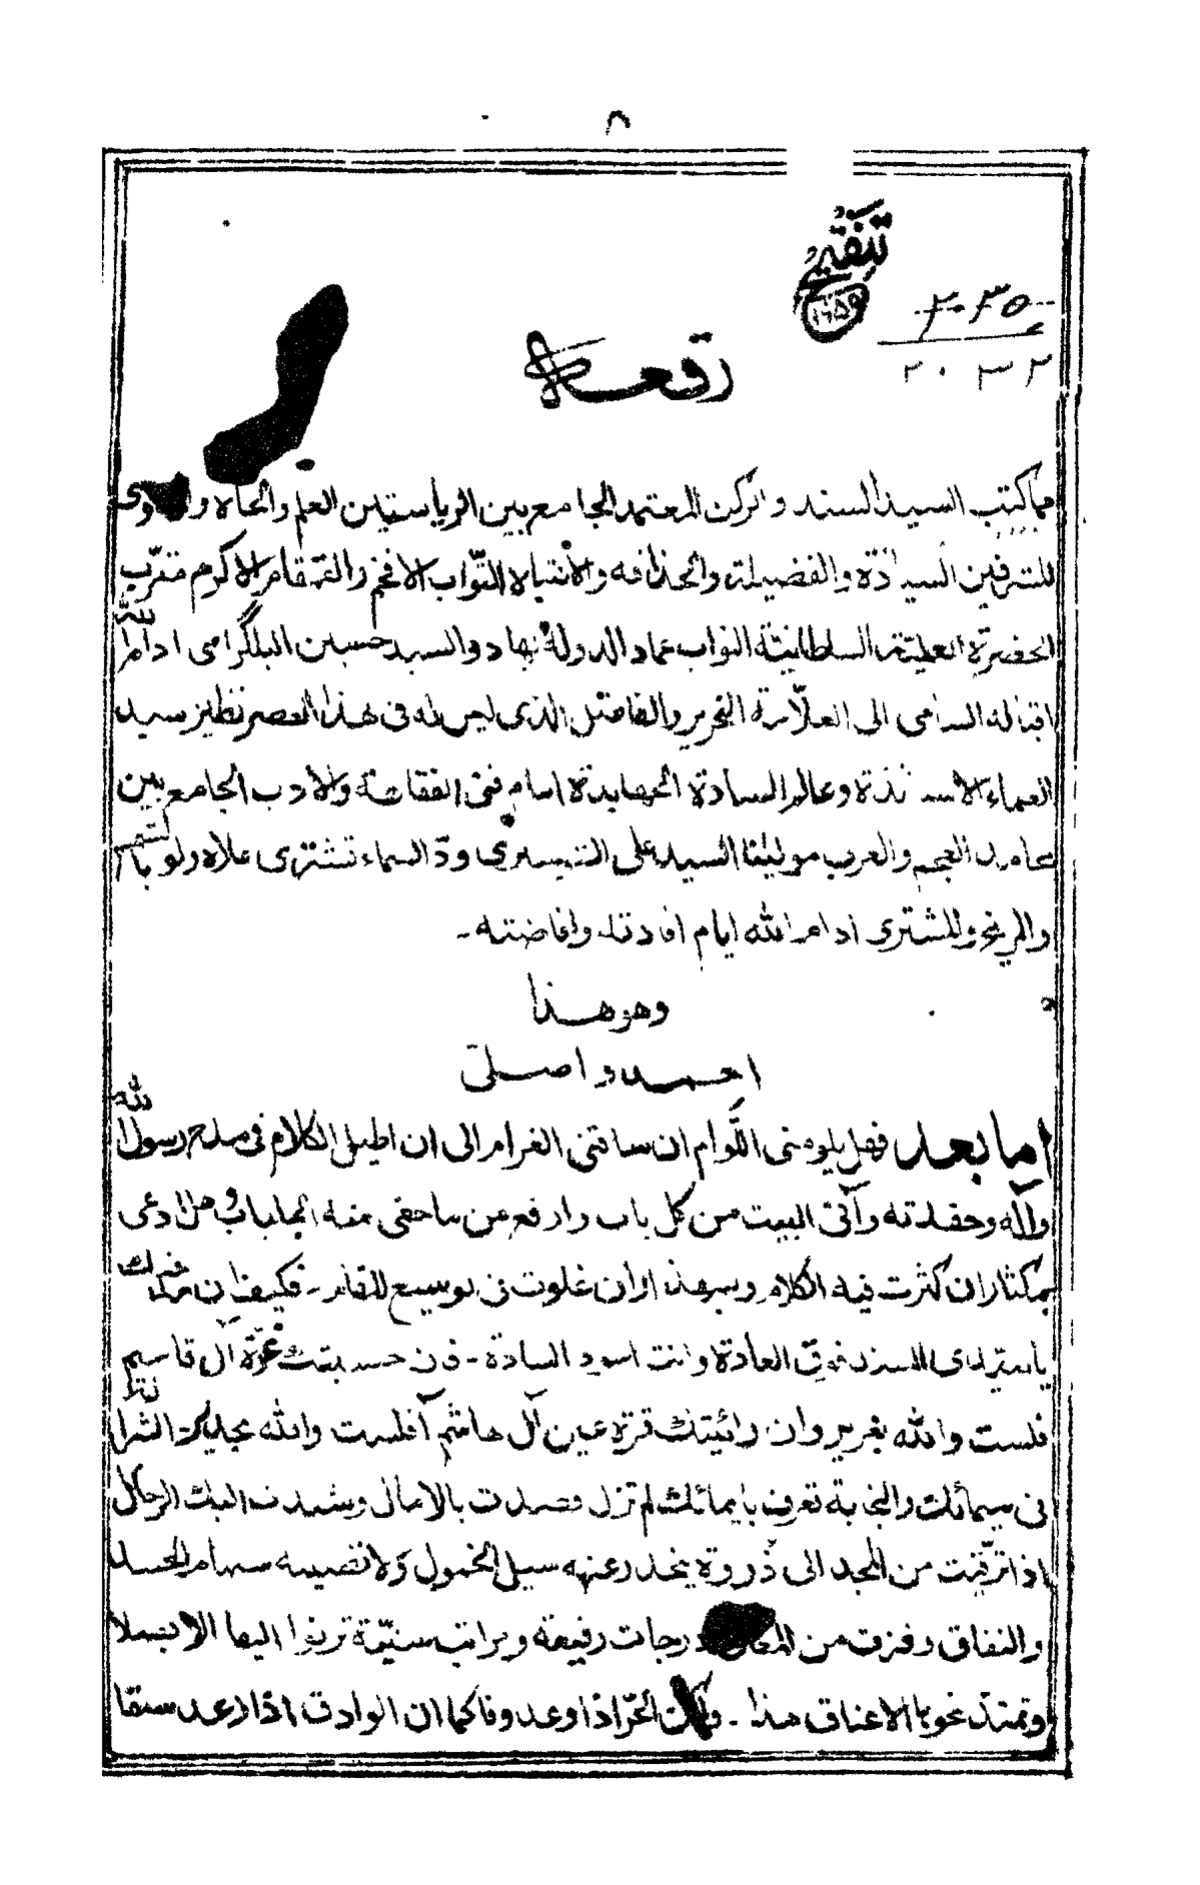 ٨
تنقيح
١٦٥٩
٢٠٣٥
٢٠٣٢
رقعه
مما كتب السيد السند والركن المعتمد الجامع بين الرياستين العلم والجاه و
للشرفين السيادة والفضيلة والحذاقه والانتباه النواب الافخم والقمقام الاكرم مقرب
الحضرة العلية السلطانية النواب عماد الدوله بهادر السيد حسين البلگرامى ادام الله
اقباله السامى الى العلّامة النحرير والفاضل الذى ليس له فى هذا العصر نظير سيد
العلماء الاساتذة وعالم السادة الجهابذة امام فنى الفقاهة والادب الجامع بين
محامد العجم والعرب مولينا السيد على التستري ودّ السماء تشترى علاه ولو بالسهى
والمريخ والمشترى ادام الله ايام افادته وافاضته -
وهو هذا
احمد و اصلى
امابعد فهل يلومنى اللّوام ان ساقنى الغرام الى ان اطيل الكلام فى مدح رسول الله
وآله وحفدته وآتى البيت من كل باب وارفع من ساحتى منه الجلباب و من ادعى
بمكثار ان كثرت فيه الكلام وبهذر ان غلوت فى توسيع المقام - فكيف ان
يا سيدى السند فوق العادة وانت اسود السادة - فان حسبتك غرّة آل قاسم
فلست والله بغرير وان رائيتك قرة عين آل هاشم آفلست والله بجدير اثرا
فى سيمائك والنجابة تعرف بايمائك لم تزل قصدت بالامال وشدت اليك الرحال
اذا ترقّيت من المجد الى ذروة ينحدر عنه سيل الخمول ولا تصيبه سهام الحسد
والنفاق وفزت من درجات رفيعة ومراتب سنيّة ترنوا اليها الابصار
وتمتدّ نحوها الاعناق هذا - ولكن الحرّ اذا وعد وفا كما ان الوادق اذا رعد سقا